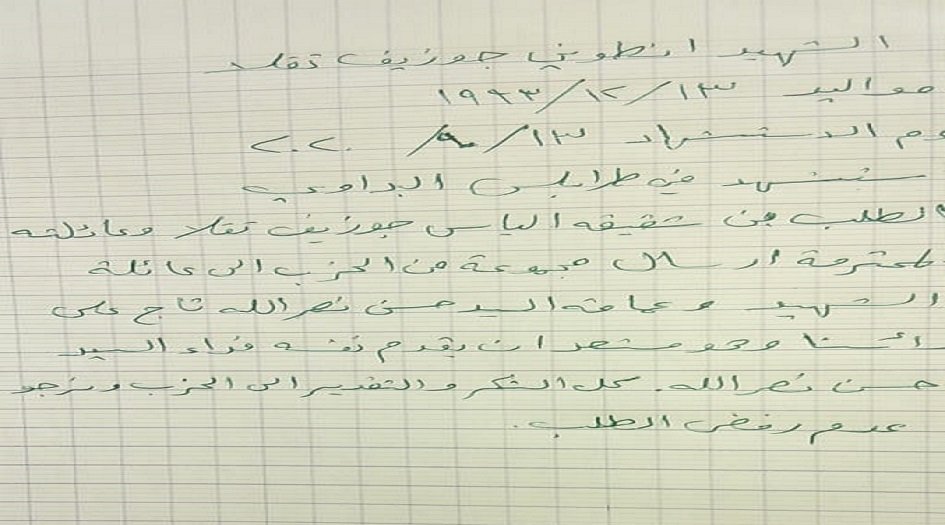 الشهيد انطوني جوزيف تقلا
مواليد ١٣/١٢/١٩٩٣
وم الاستشهاد ١٣/٩/٢٠٢٠
ستشهد في طرابلس البداوي
الطلب من شقيقه الياس جوزيف تقلا وعائلته
لمحترمة ارسال مجموعة من الحزب الى عائلة
الشهيد وعمامة السيد حسن نصرالله تاج على
رائسنا وهو مستعد ان يقدم نفسه فداء السيد
حسن نصرالله. كل الشكر والتقدير الى الحزب ونرجو
عدم رفض الطلب.